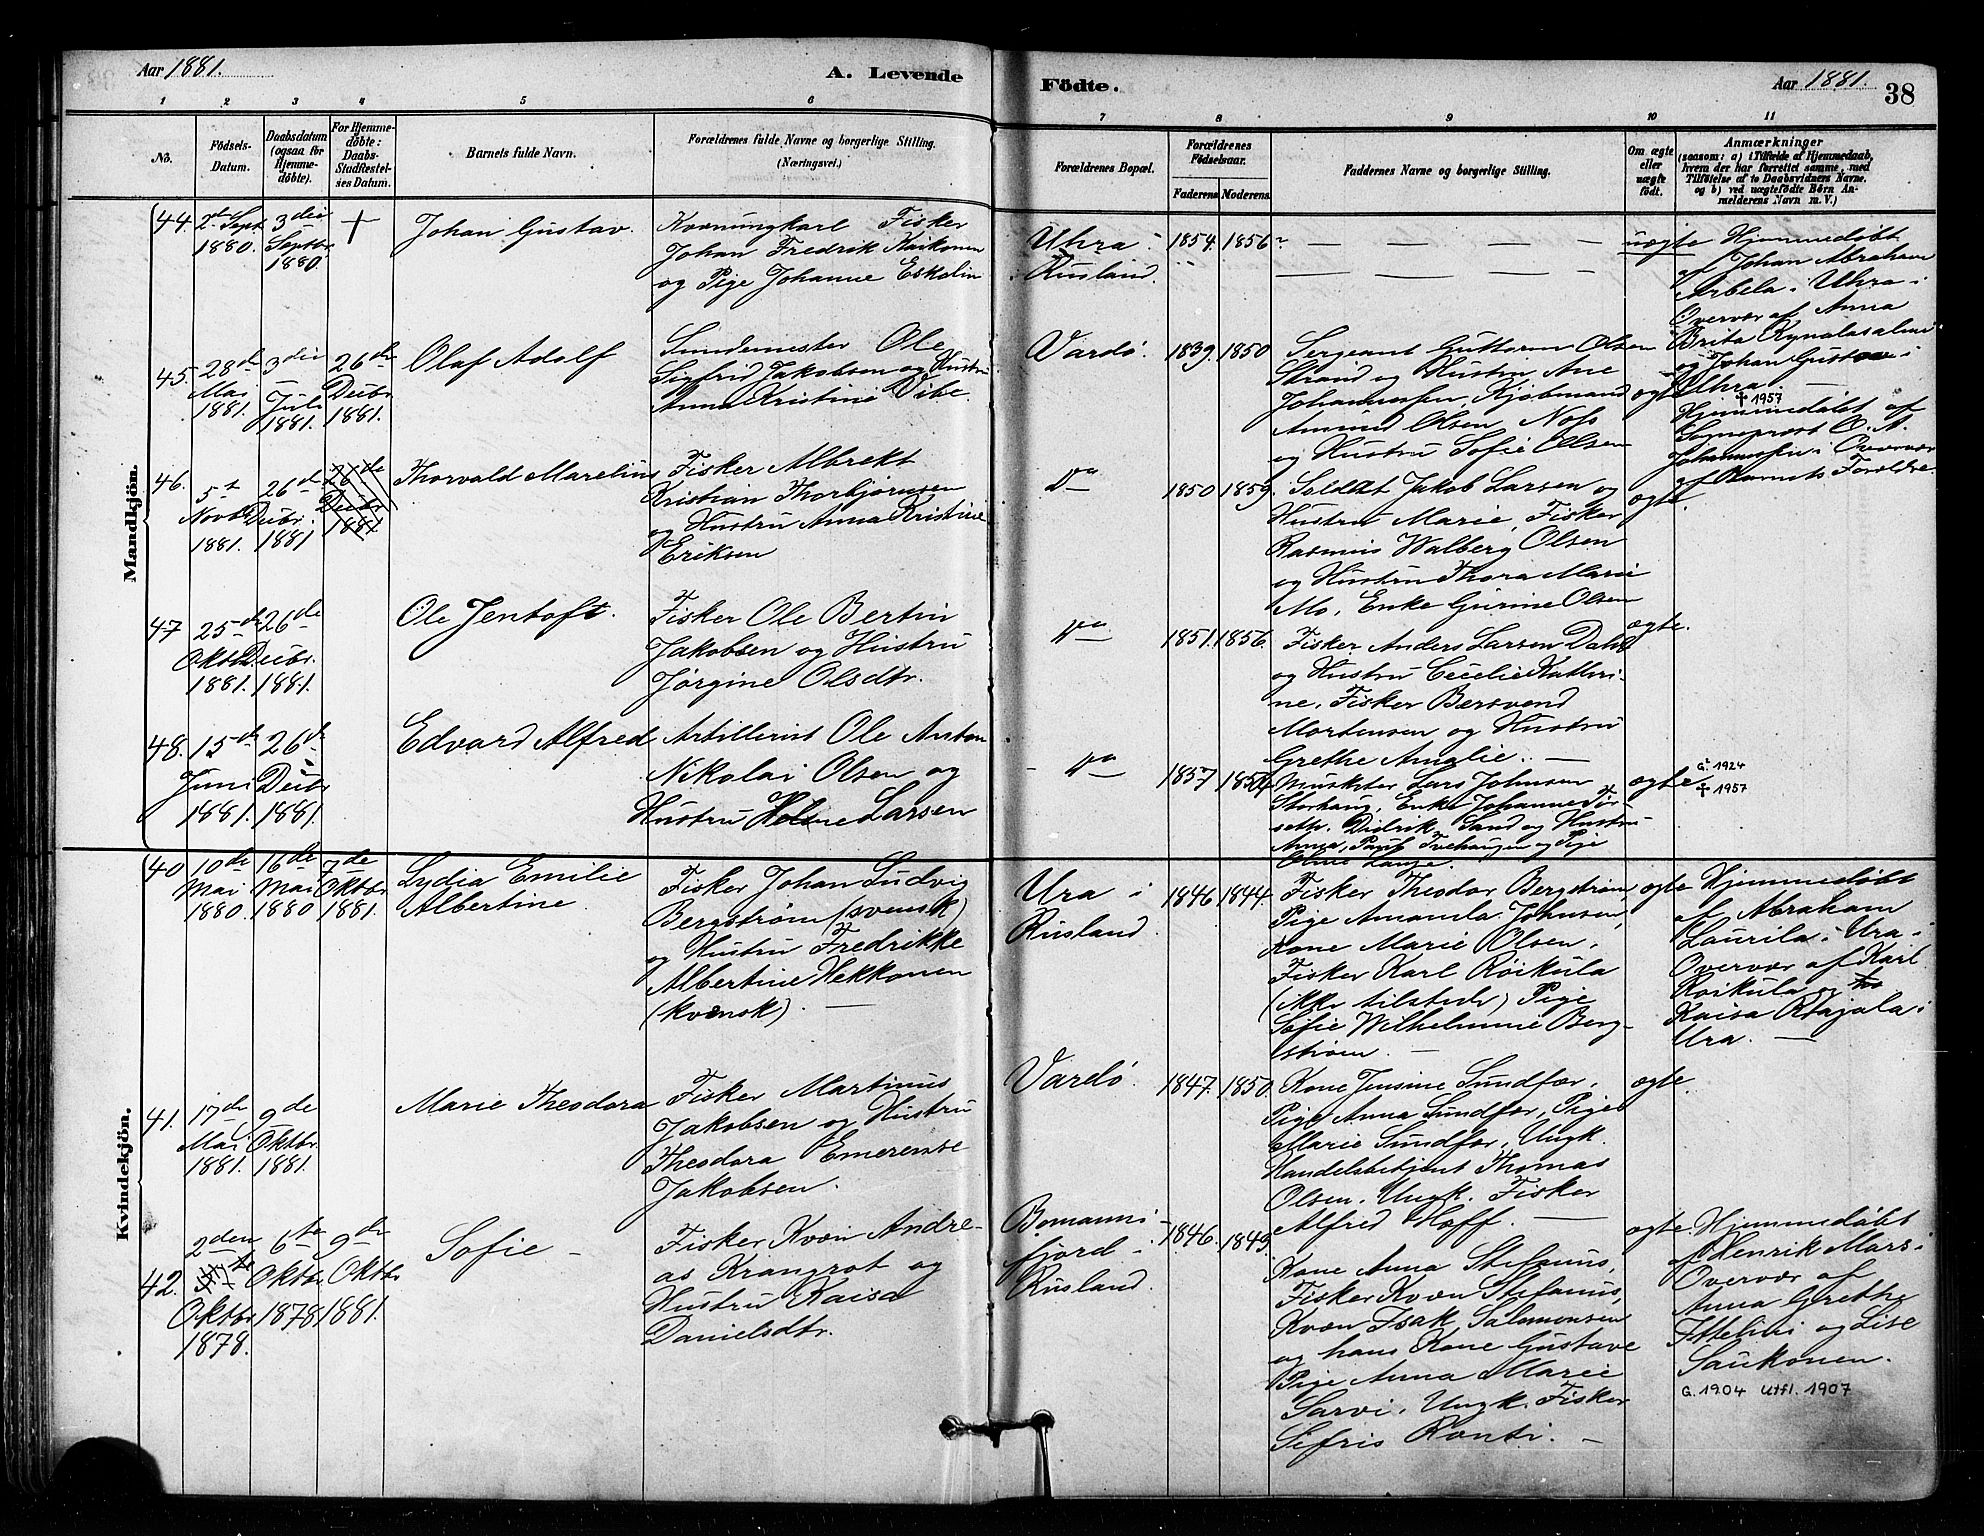 Aar 1881.
A. Levende
Födte.
Aar 1881.
38
1 2 3 4 5 6 7 8 9 10 11
No.
Födsels-
Datum.
Daabsdatum
(ogsaa for
Hjemme-
döbte).
For Hjemme-
döbte:
Daabs-
Stadfæstel-
ses Datum.
Barnets fulde Navn.
Forældrenes fulde Navne og borgerlige Stilling.
(Næringsvei.)
Forældrenes Bopæl.
Forældrenes
Födselsaar.
Faderens Moderens.
Faddernes Navne og borgerlige Stilling.
Om ægte
eller
uægte
födt.
Anmærkninger
(saasom: a) i Tilfælde af Hjemmedaab,
hvem der har forrettet samme, med
Tilföielse af to Daabsvidners Navne.
og b) ved uægtefödte Börn An-
melderens Navn m. V.)
Mandkjön.
44.
2den Sept
1880.
3die
Septbr
1880.
+
Johan Gustav.
Kvænungkarl Fisker
Johan Fredrik Kaikonen
og Pige Johanne Eskolin
Uhra i
Rusland.
1854. 1856
uægte
Hjemmedøbt
af Johan Abraham
Arbela i Uhra i
Overvær af Anna
Brita Kynalasalmi
og Johan Gustav i
Uhra.
45.
28de
Mai
1881.
3die
Juli
1881.
26de
Decbr
1881.
Olaf Adolf
Ole
Sigfrid Jakobsen og Hustru
Anna Kristine Vibe.
Vardö.
1839. 1850
Sergeant Guttorm Olsen
Strand og Hustru Ane
Johannessen, Kjøbmand
Amund Olsen Nofs
og Hustru Sofie Olsen
ægte
✝ 1957
Hjemmedøbt af
Sogneprest O. A.
Johannessen i Overvær
af Barnets Forældre.
46.
5te
Novbr
1881.
26de
Decbr.
1881
26de
Decbr
1881
Thorvald Marelius
Fisker Albrekt
Kristian Thorbjørnsen
og Hustru Anna Kristine
Eriksen
Do
1850 1859.
Soldat Jakob Larsen og
Hustru Marie, Fisker
Rasmus Walberg Olsen
og Hustru Thora Marie
Mo, Enke Gurine Olsen
ægte.
47
25de
Oktbr
1881.
26de
Decbr.
1881.
Ole Jentoft.
Fisker Ole Bertin
Jakobsen og Hustru
Jørgine Olsdtr.
Do
1851. 1856.
Fisker Anders Larsen Dahl
og Hustru Cecelie Kathri-
ne, Fisker Bersvend
Mortensen og Hustru
Grethe Amalie. —
ægte.
48.
15de
Juni
1881.
26de
Decbr
1881.
Edvard Alfred
Artillerist Ole Anton
Nikolai Olsen og
Hustru Larsen
Do
1857 1854
Musketer Lars Johnsen
Storhaug, Enke Johanne Tør
seth. Didrik Sand og Hustru
Anna, Paul Tvehaugen og Pige
Oline Lange.
ægte
G. 1924
✝ 1957
Kvindekjön.
40
10de
Mai
1880.
16de
Mai
1880
7de
Oktbr
1881.
Lydia Emilie
Albertine.
Fisker Johan Ludvig
Bergstrøm (svensk)
og Hustru Fredrikke
Albertine Hekkonen
(kvænsk). —
Ura i
Rusland.
1846 1844.
Fisker Theodor Bergstrøm,
Pige Amanda Johnsen,
Kone Marie Olsen,
Fisker Karl Röikula
(ikke tilstede) Pige
Sofie Wilhelmine Berg-
strøm. —
ægte
Hjemmedøbt
af Abraham
Laurila i Ura i
Overvær af Karl
Roikula og
Kaisa Rajala i
Ura. —
41.
17de
Mai
1881.
9de
Oktbr.
1881.
Marie Theodora
Fisker Martinus
Jakobsen og Hustru
Theodora Emerense
Jakobsen.
Vardö.
1847. 1850.
Kone Jensine Sundfær,
Pige Anna Sundfær, Pige
Marie Sundfær, Ungk.
Handelsbetjent Thomas
Olsen, Ungk. Fisker
Alfred Hoff. —
ægte.
42.
2den
Oktbr
1878.
6te
Oktbr
1878
9de
Oktbr
1881.
Sofie —
Fisker Kvæn Andre-
as Krangrot og
Hustru Kaisa
Danielsdtr.
Bomanns-
fjord i
Rusland.
1846. 1849.
Kone Anna Stefanus,
Fisker Kvæn Stefanus,
Kvæn Isak Salamonsen
og hans Kone Gustave
Pige Anna Marie
Sarvi, Ungk. Fisker
Sifris Ronti. —
ægte.
Hjemmedøbt
af Henrik Mars i
Overvær af
Anna Grethe
Ittelini og Lise
Saukonen.
G. 1904 utfl. 1907